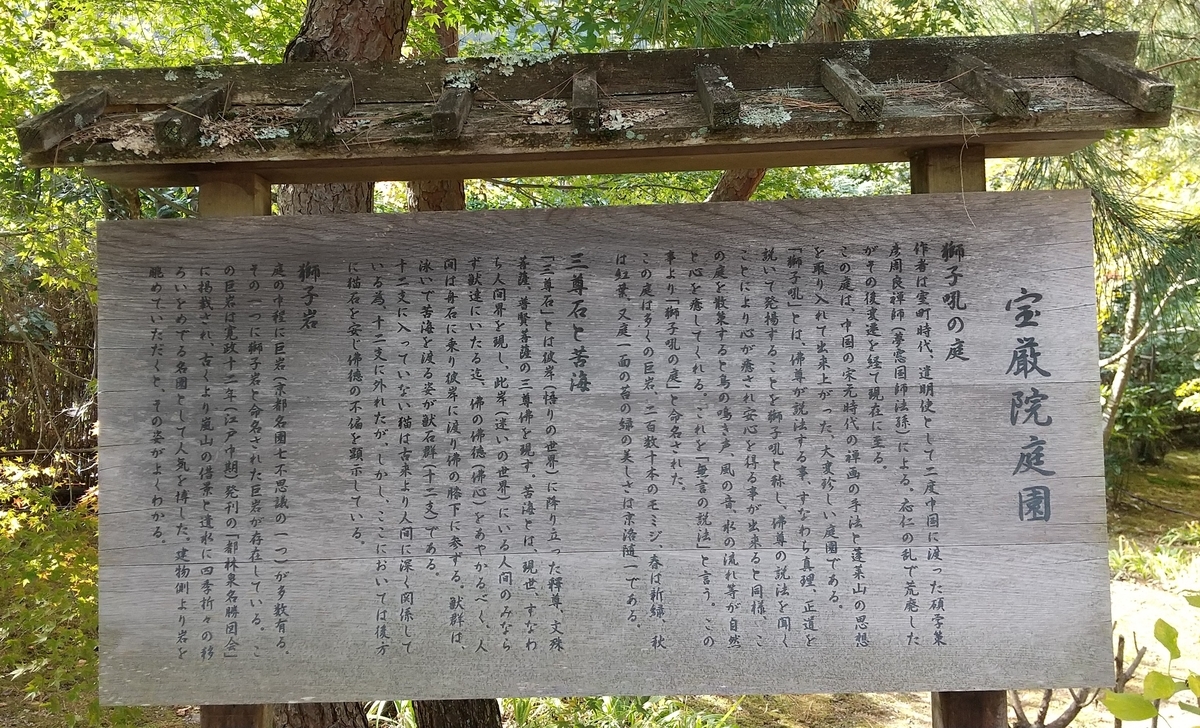 宝厳院庭園
獅子吼の庭
作者は室町時代、遣明使として二度中国に渡った碩学策
彦周良禅師（夢窓国師法孫）による。応仁の乱で荒廃した
がその後変遷を経て現在に至る。
この庭は、中国の宋元時代の禅画の手法と蓬莱山の思想
を取り入れて出来上がった、大変珍しい庭園である。
「獅子吼」とは、佛尊が説法する事、すなわち真理、正道を
説いて発揚することを獅子吼と称し、佛尊の説法を聞く
ことにより心が癒され安心を得る事が出来ると同様、こ
の庭を散策すると鳥の鳴き声、風の音、水の流れ等が自然
と心を癒してくれる。これを「無言の説法」と言う。この
事より「獅子吼の庭」と命名された。
この庭は多くの巨岩、二百数十本のモミジ、春は新緑、秋
は紅葉、又庭一面の苔の緑の美しさは京洛随一である。
三尊石と苦海
「三尊石」とは彼岸（悟りの世界）に降り立った釋尊、文殊
菩薩、普賢菩薩の三尊佛を現す。苦海とは、現世、すなわ
ち人間界を現し、此岸（迷いの世界）にいる人間のみなら
ず獣達にいたる迄、佛の佛徳（佛心）をあやかるべく、人
間は舟石に乗り彼岸に渡り佛の膝下に参ずる。獣群は、
泳いで苦海を渡る姿が獣石群（十二支）である。
十二支に入っていない猫は古来より人間に深く関係して
いる為、十二支に外れたが、しかし、ここにおいては後方
に猫石を安じ佛徳の不偏を顕示している。
獅子岩
庭の中程に巨岩（京都名園七不思議の一つ）が多数有る。
その一つに獅子岩と命名された巨岩が存在している。こ
の巨岩は寛政十二年（江戸中期）発刊の「都林泉名勝図会」
に掲載され、古くより嵐山の借景と遣水に四季折々の移
ろいをめでる名園として人気を博した。建物側より岩を
眺めていただくと、その姿がよくわかる。